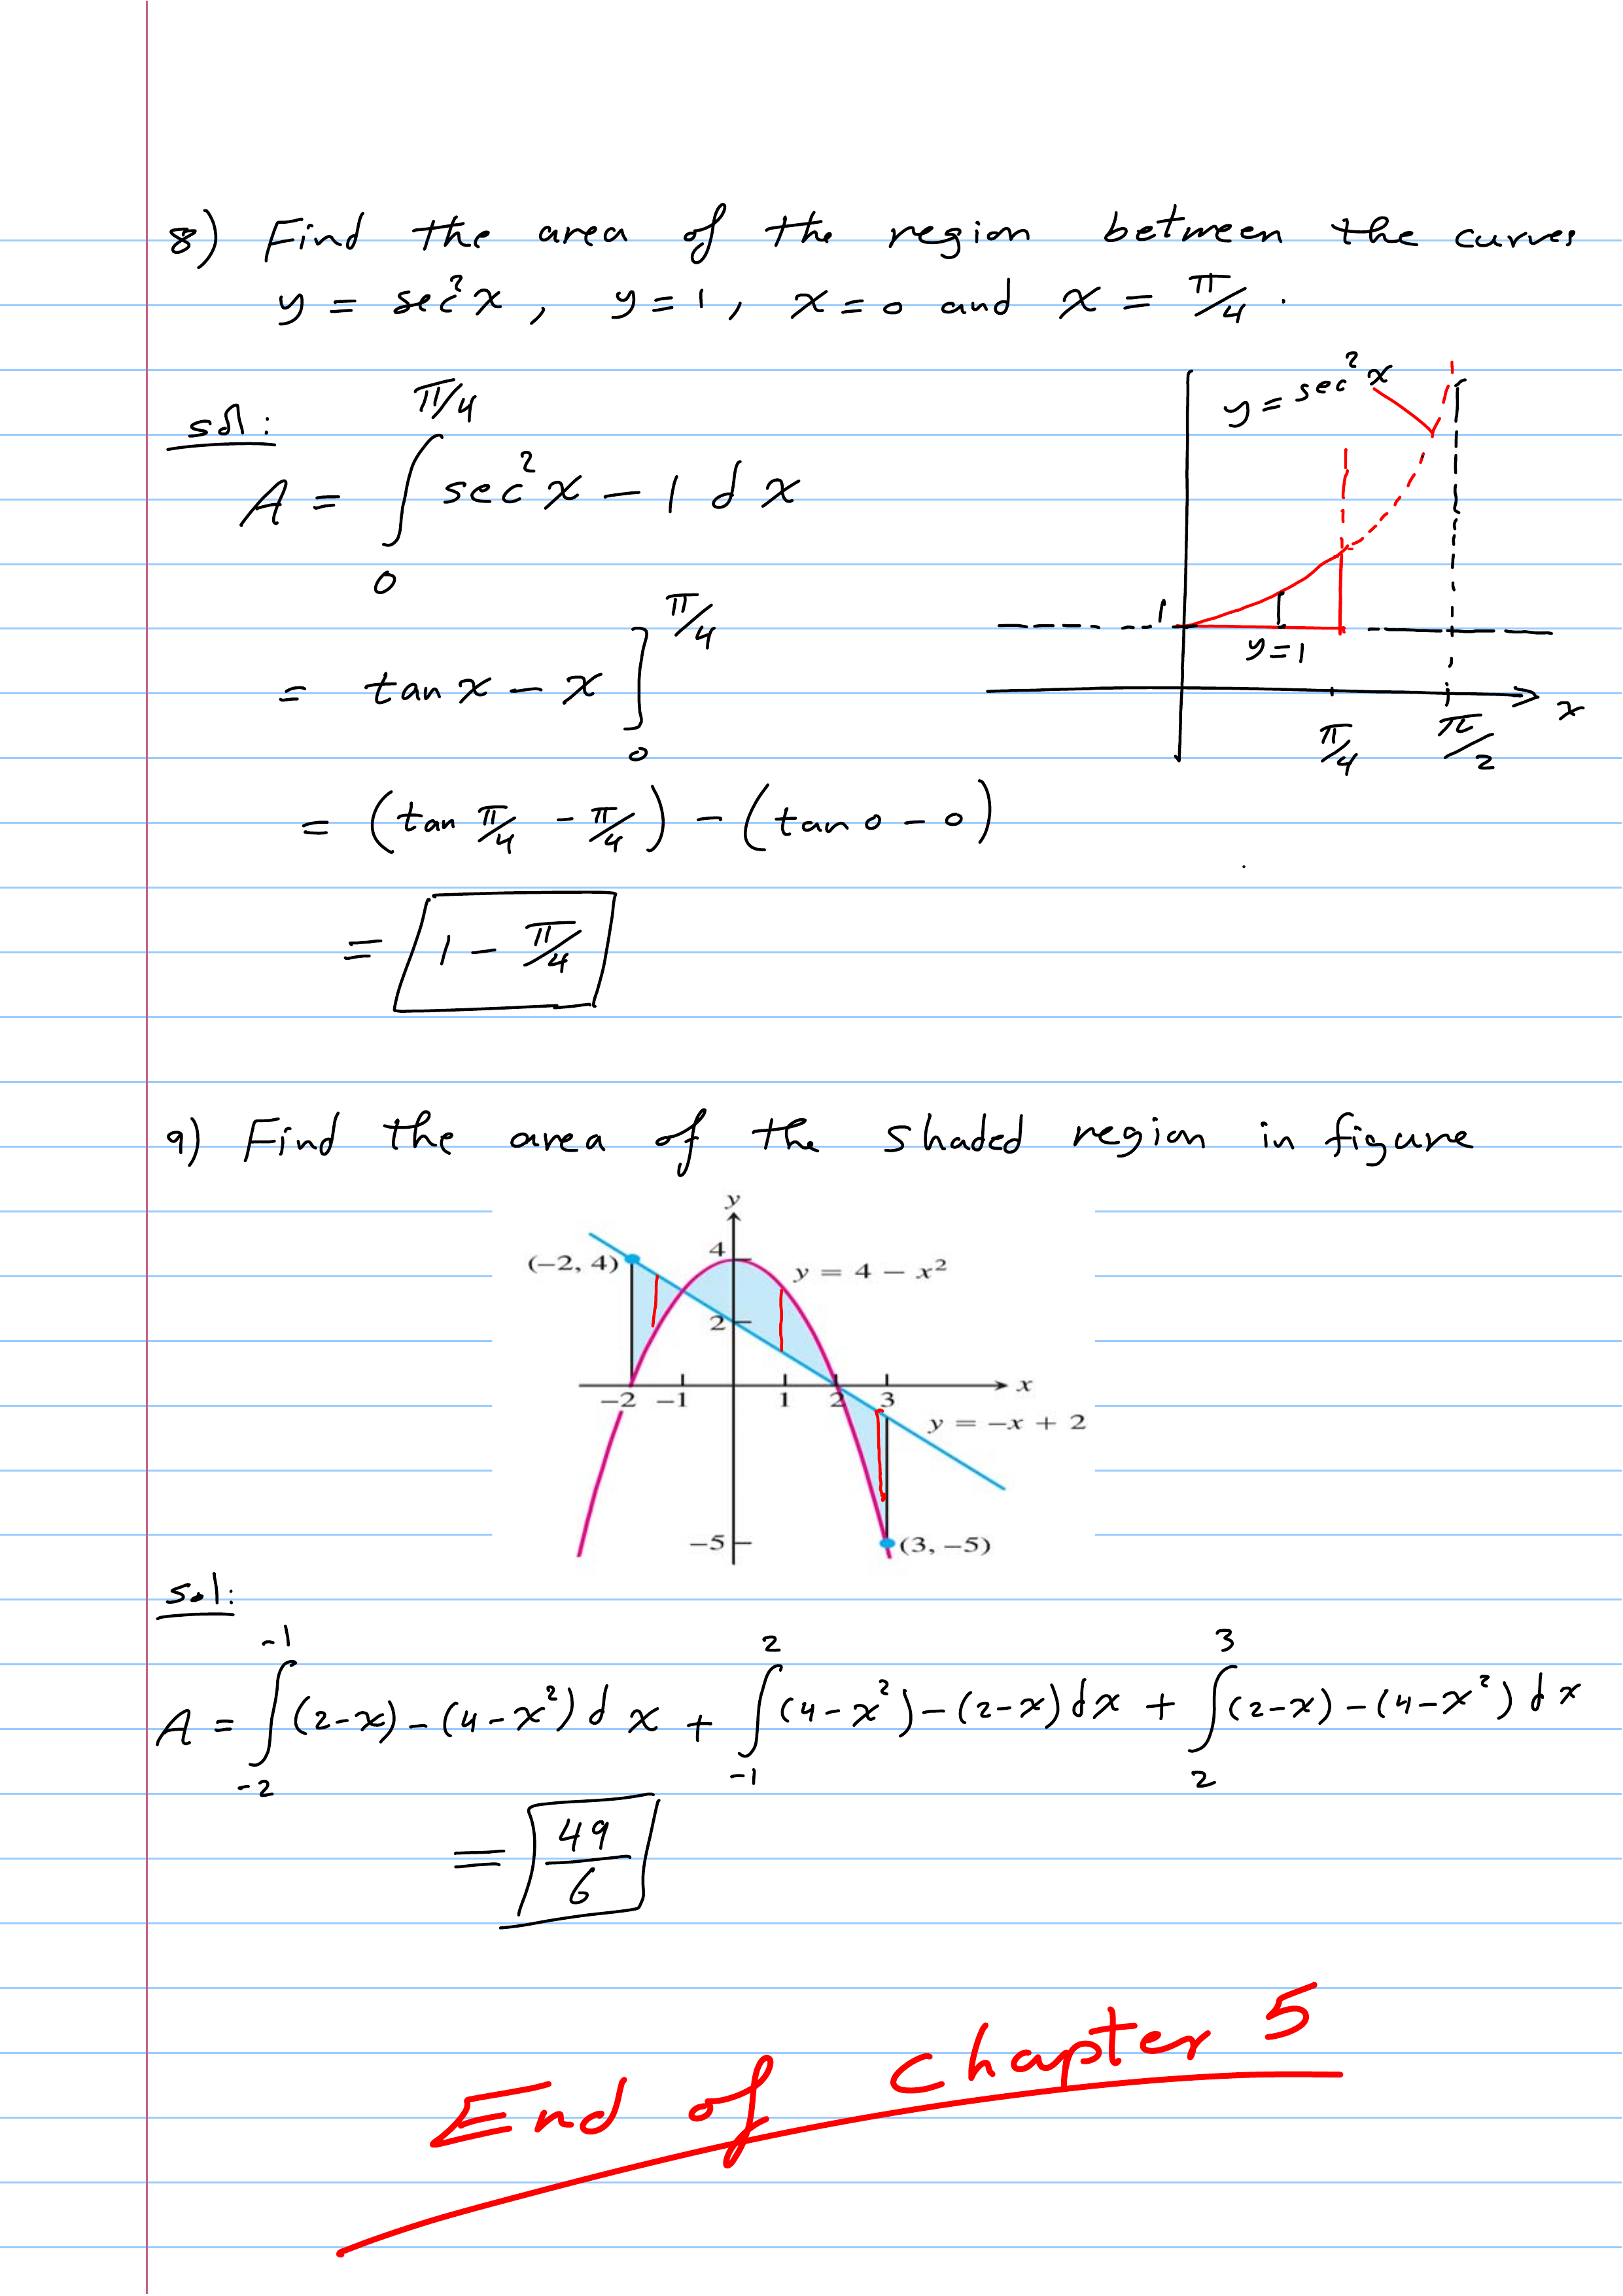 8) Find the area of the region between the curves
y = sec²x, y=1, x=0 and x = π/4.
sol:
A = ∫₀^{π/4} sec²x − 1 dx
= tan x − x ]₀^{π/4}
= (tan π/4 − π/4) − (tan 0 − 0)
= 1 − π/4
y = sec²x
1
y=1
π/4
π/2
x
9) Find the area of the shaded region in figure
y
(−2, 4)
4
y = 4 − x²
2
−2 −1 1 2 3 x
y = −x + 2
−5
(3, −5)
sol:
A = ∫₋₂^{-1} (2−x) − (4−x²) dx + ∫₋₁^{2} (4−x²) − (2−x) dx + ∫₂^{3} (2−x) − (4−x²) dx
= 49/6
End of Chapter 5